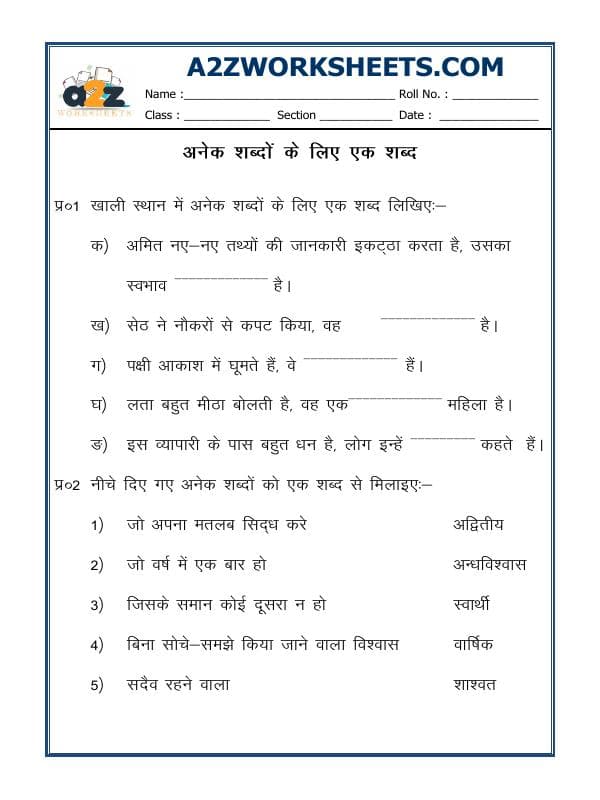 A2ZWORKSHEETS.COM
a2z
WORKSHEETS
Name :______________________________ Roll No. : ____________
Class : ____________ Section __________ Date : ______________
अनेक शब्दों के लिए एक शब्द
प्र०1 खाली स्थान में अनेक शब्दों के लिए एक शब्द लिखिए:–
क) अमित नए–नए तथ्यों की जानकारी इकट्ठा करता है, उसका
स्वभाव _____________ है।
ख) सेठ ने नौकरों से कपट किया, वह _____________ है।
ग) पक्षी आकाश में घूमते हैं, वे _____________ हैं।
घ) लता बहुत मीठा बोलती है, वह एक_____________ महिला है।
ङ) इस व्यापारी के पास बहुत धन है, लोग इन्हें _________ कहते हैं।
प्र०2 नीचे दिए गए अनेक शब्दों को एक शब्द से मिलाइए:–
1) जो अपना मतलब सिद्ध करे अद्वितीय
2) जो वर्ष में एक बार हो अन्धविश्वास
3) जिसके समान कोई दूसरा न हो स्वार्थी
4) बिना सोचे–समझे किया जाने वाला विश्वास वार्षिक
5) सदैव रहने वाला शाश्वत